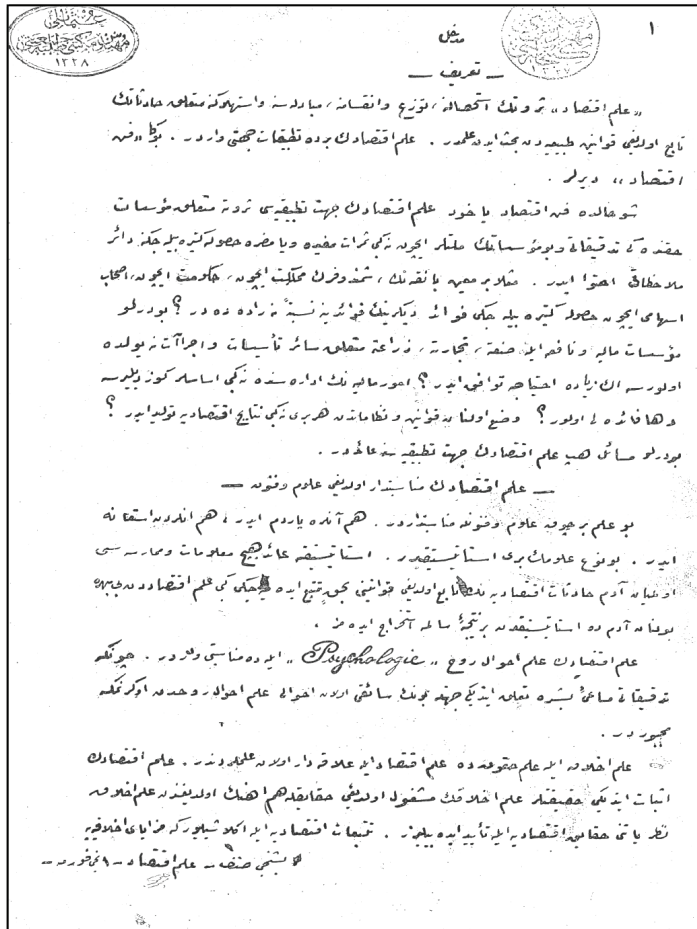 ١
عثمانلی
مهندس مکتبی
١٣٢٨
مدخل
— تعریف —
«علم اقتصاد» ثروتك استحصالنه، توزیع وانقسامنه، مبادله سنه واستهلاكنه متعلق حادثاتك
تابع اولدیغی قوانین طبیعیه دن بحث ایدن علمدر. علم اقتصادك برده تطبیقات جهتی واردر. بوكا «فن
اقتصاد» دیرلر.
شو حالده فن اقتصاد یاخود علم اقتصادك جهت تطبیقیه سی ثروته متعلق مؤسسات
حقنده كی تدقیقاتی وبو مؤسساتك ملتلر ایچون نه كبی ثمرات مفیده ویا مضره حصوله كتیره بیله جكنه دائر
ملاحظاتی احتوا ایدر. مثلا بر معین یا نقدنك، شمندوفرك مملكت ایچون، حكومت ایچون، اصحاب
اسهامی ایچون حصوله كتیره بیله جكی فوائد دیكرینك فوائدینه نسبةً نه راده ده در؟ بودرلو
مؤسسات مالیه و نافعه ایله صنعته، تجارته، زراعته متعلق سائر تأسیسات واجراآت نه یولده
اولورسه اك زیاده احتیاجه توافق ایدر؟ امور مالیه نك اداره سنده نه كبی اساسلر كوزدیلیرسه
دها فائده لی اولور؟ وضع اولنان قوانین ونظاماتدن هربری نه كبی نتایج اقتصادیه تولید ایدر؟
بودرلو مسائل هپ علم اقتصادك جهت تطبیقیه سنه عائددر.
— علم اقتصادك مناسبتدار اولدیغی علوم وفنون —
بو علم بر چوق علوم وفنونه مناسبتداردر. هم آنلره یاردم ایدر، هم انلردن استعانه
ایدر. بو نوع علومك بری استاتیستیقدر. استاتیستیقه عائد هیچ معلومات وممارسه سی
اولمیان آدم حادثات اقتصادیه نك تابع اولدیغی قوانینی بحق تتبع ایده میه جكی كبی علم اقتصاددن بی بهره
بولنان آدم ده استاتیستیقدن بر نتیجهٔ سالمه استخراج ایده مز.
علم اقتصادك علم احوال روح «Psychologie» ایله ده مناسبتی واردر. چونكه
تدقیقاتی مساعیٔ بشره تعلق ایتدیكی جهتله بونك سائقی اولان احوالی علم احوال روحدن اوكرنمكه
مجبوردر.
علم اخلاق ایله علم حقوق ده علم اقتصاد ایله علاقه دار اولان علملردندر. علم اقتصادك
اثبات ایتدیكی حقیقتلر علم اخلاقك مشغول اولدیغی حقایقله هم اهنك اولدیغندن علم اخلاق
نظریاتنی حقایق اقتصادیه ایله تأیید ایده بیلیر. تتبعات اقتصادیه ایله اكلاشیلیور كه مزایای اخلاقیه
بشنجی صنف — علم اقتصاد — ١ نجی فورمه —